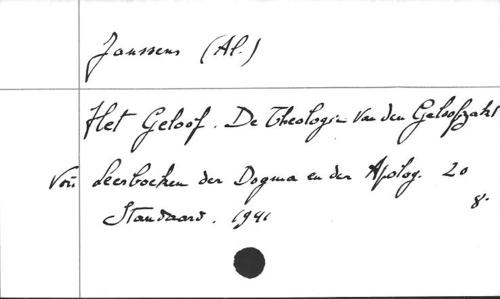 Janssens (Al.)
Het Geloof. De Theologie van den Geloofsakt
Voir Leerboeken der Dogma en der Apolog. 20
8°
Standaard. 1941